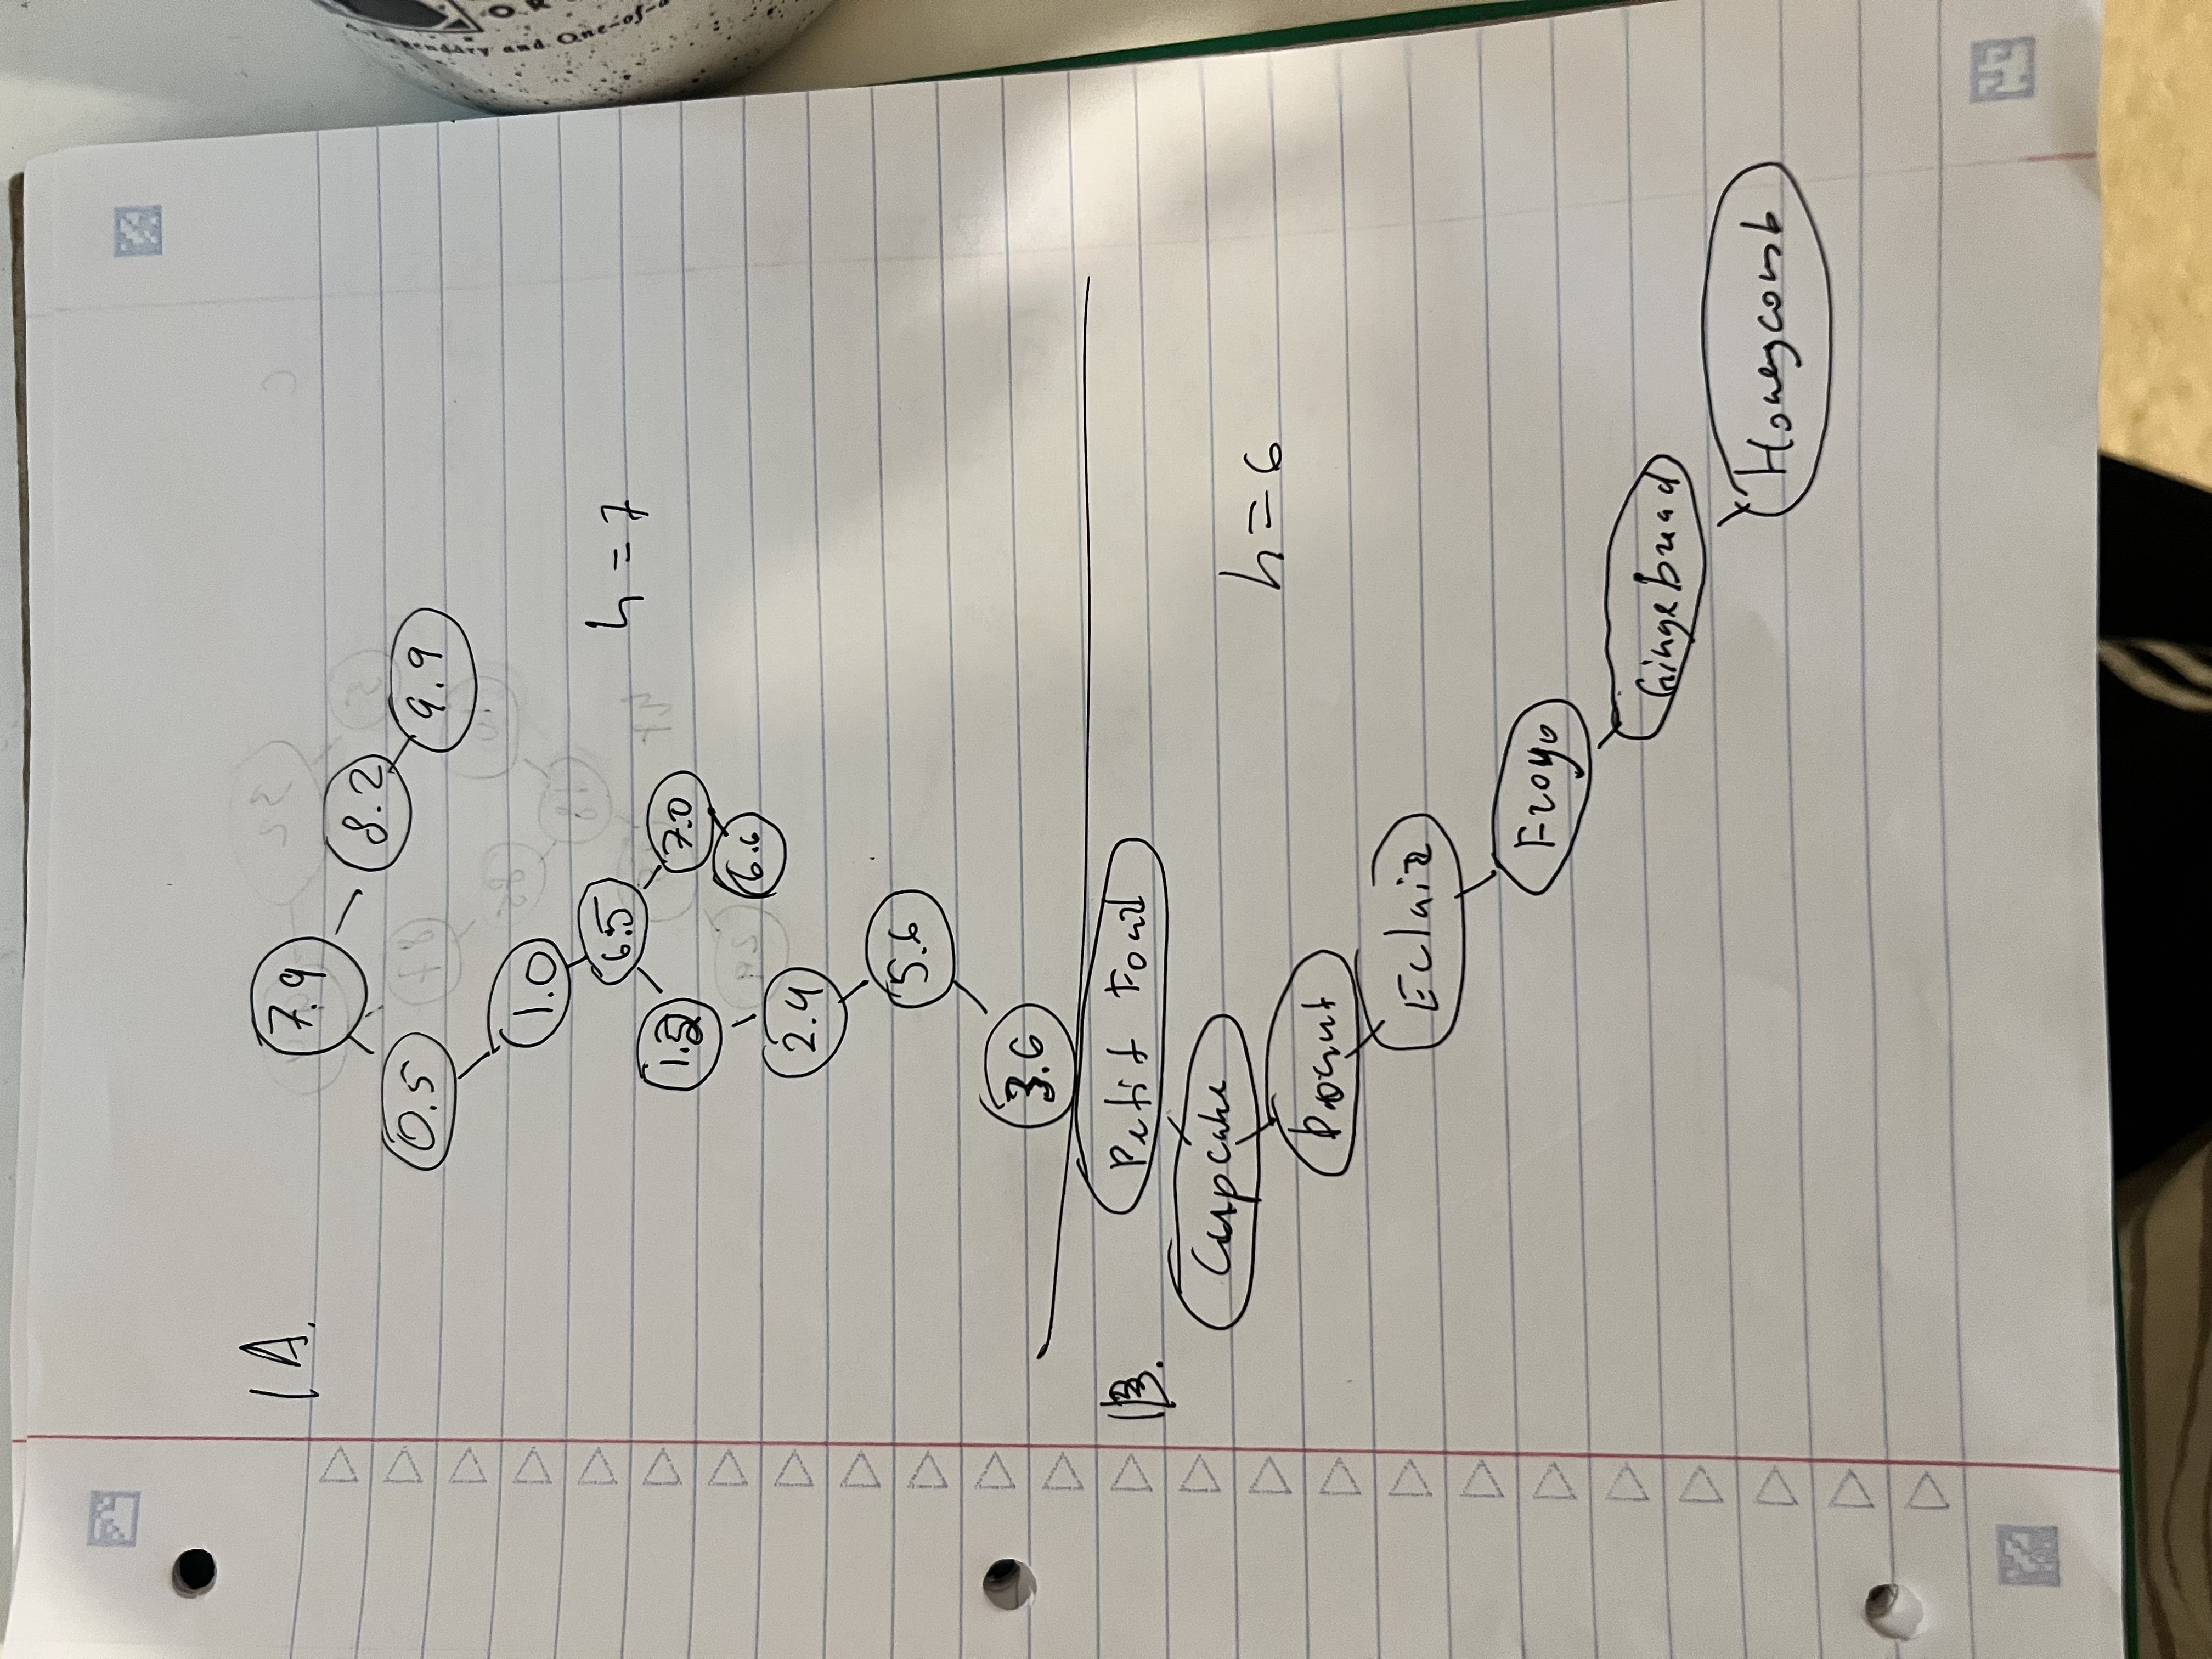 1A.
7.9
8.2
0.5
9.9
1.0
6.5
h = 7
1.2
7.0
6.6
2.4
5.6
3.6
1B.
Petit Four
Cupcake
h = 6
Donut
Eclair
Froyo
GingeBread
Honeycomb